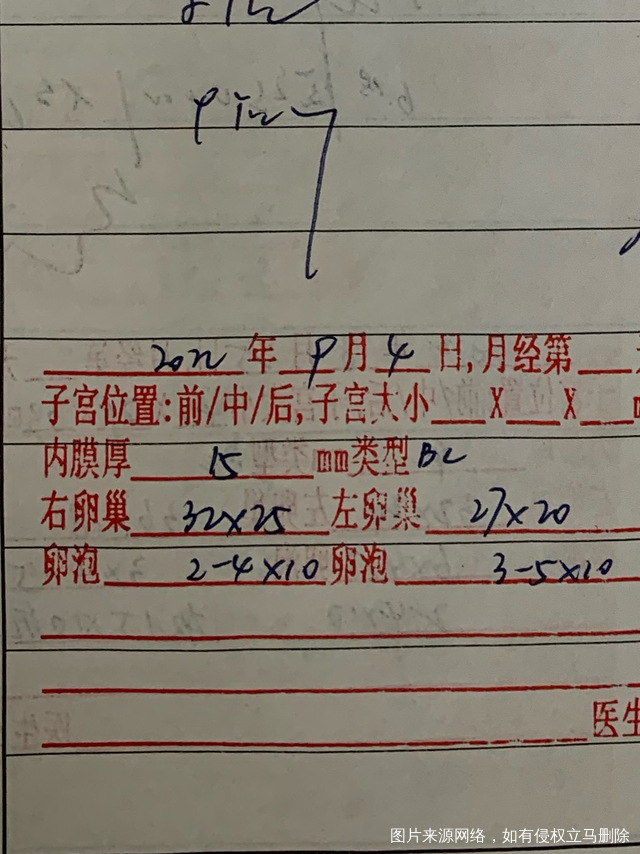 2022年9月4日,月经第
子宫位置:前/中/后,子宫大小 X X
内膜厚 15 mm类型 BC
右卵巢 32×25 左卵巢 27×20
卵泡 2-4×10 卵泡 3-5×10
医生
图片来源网络，如有侵权立马删除